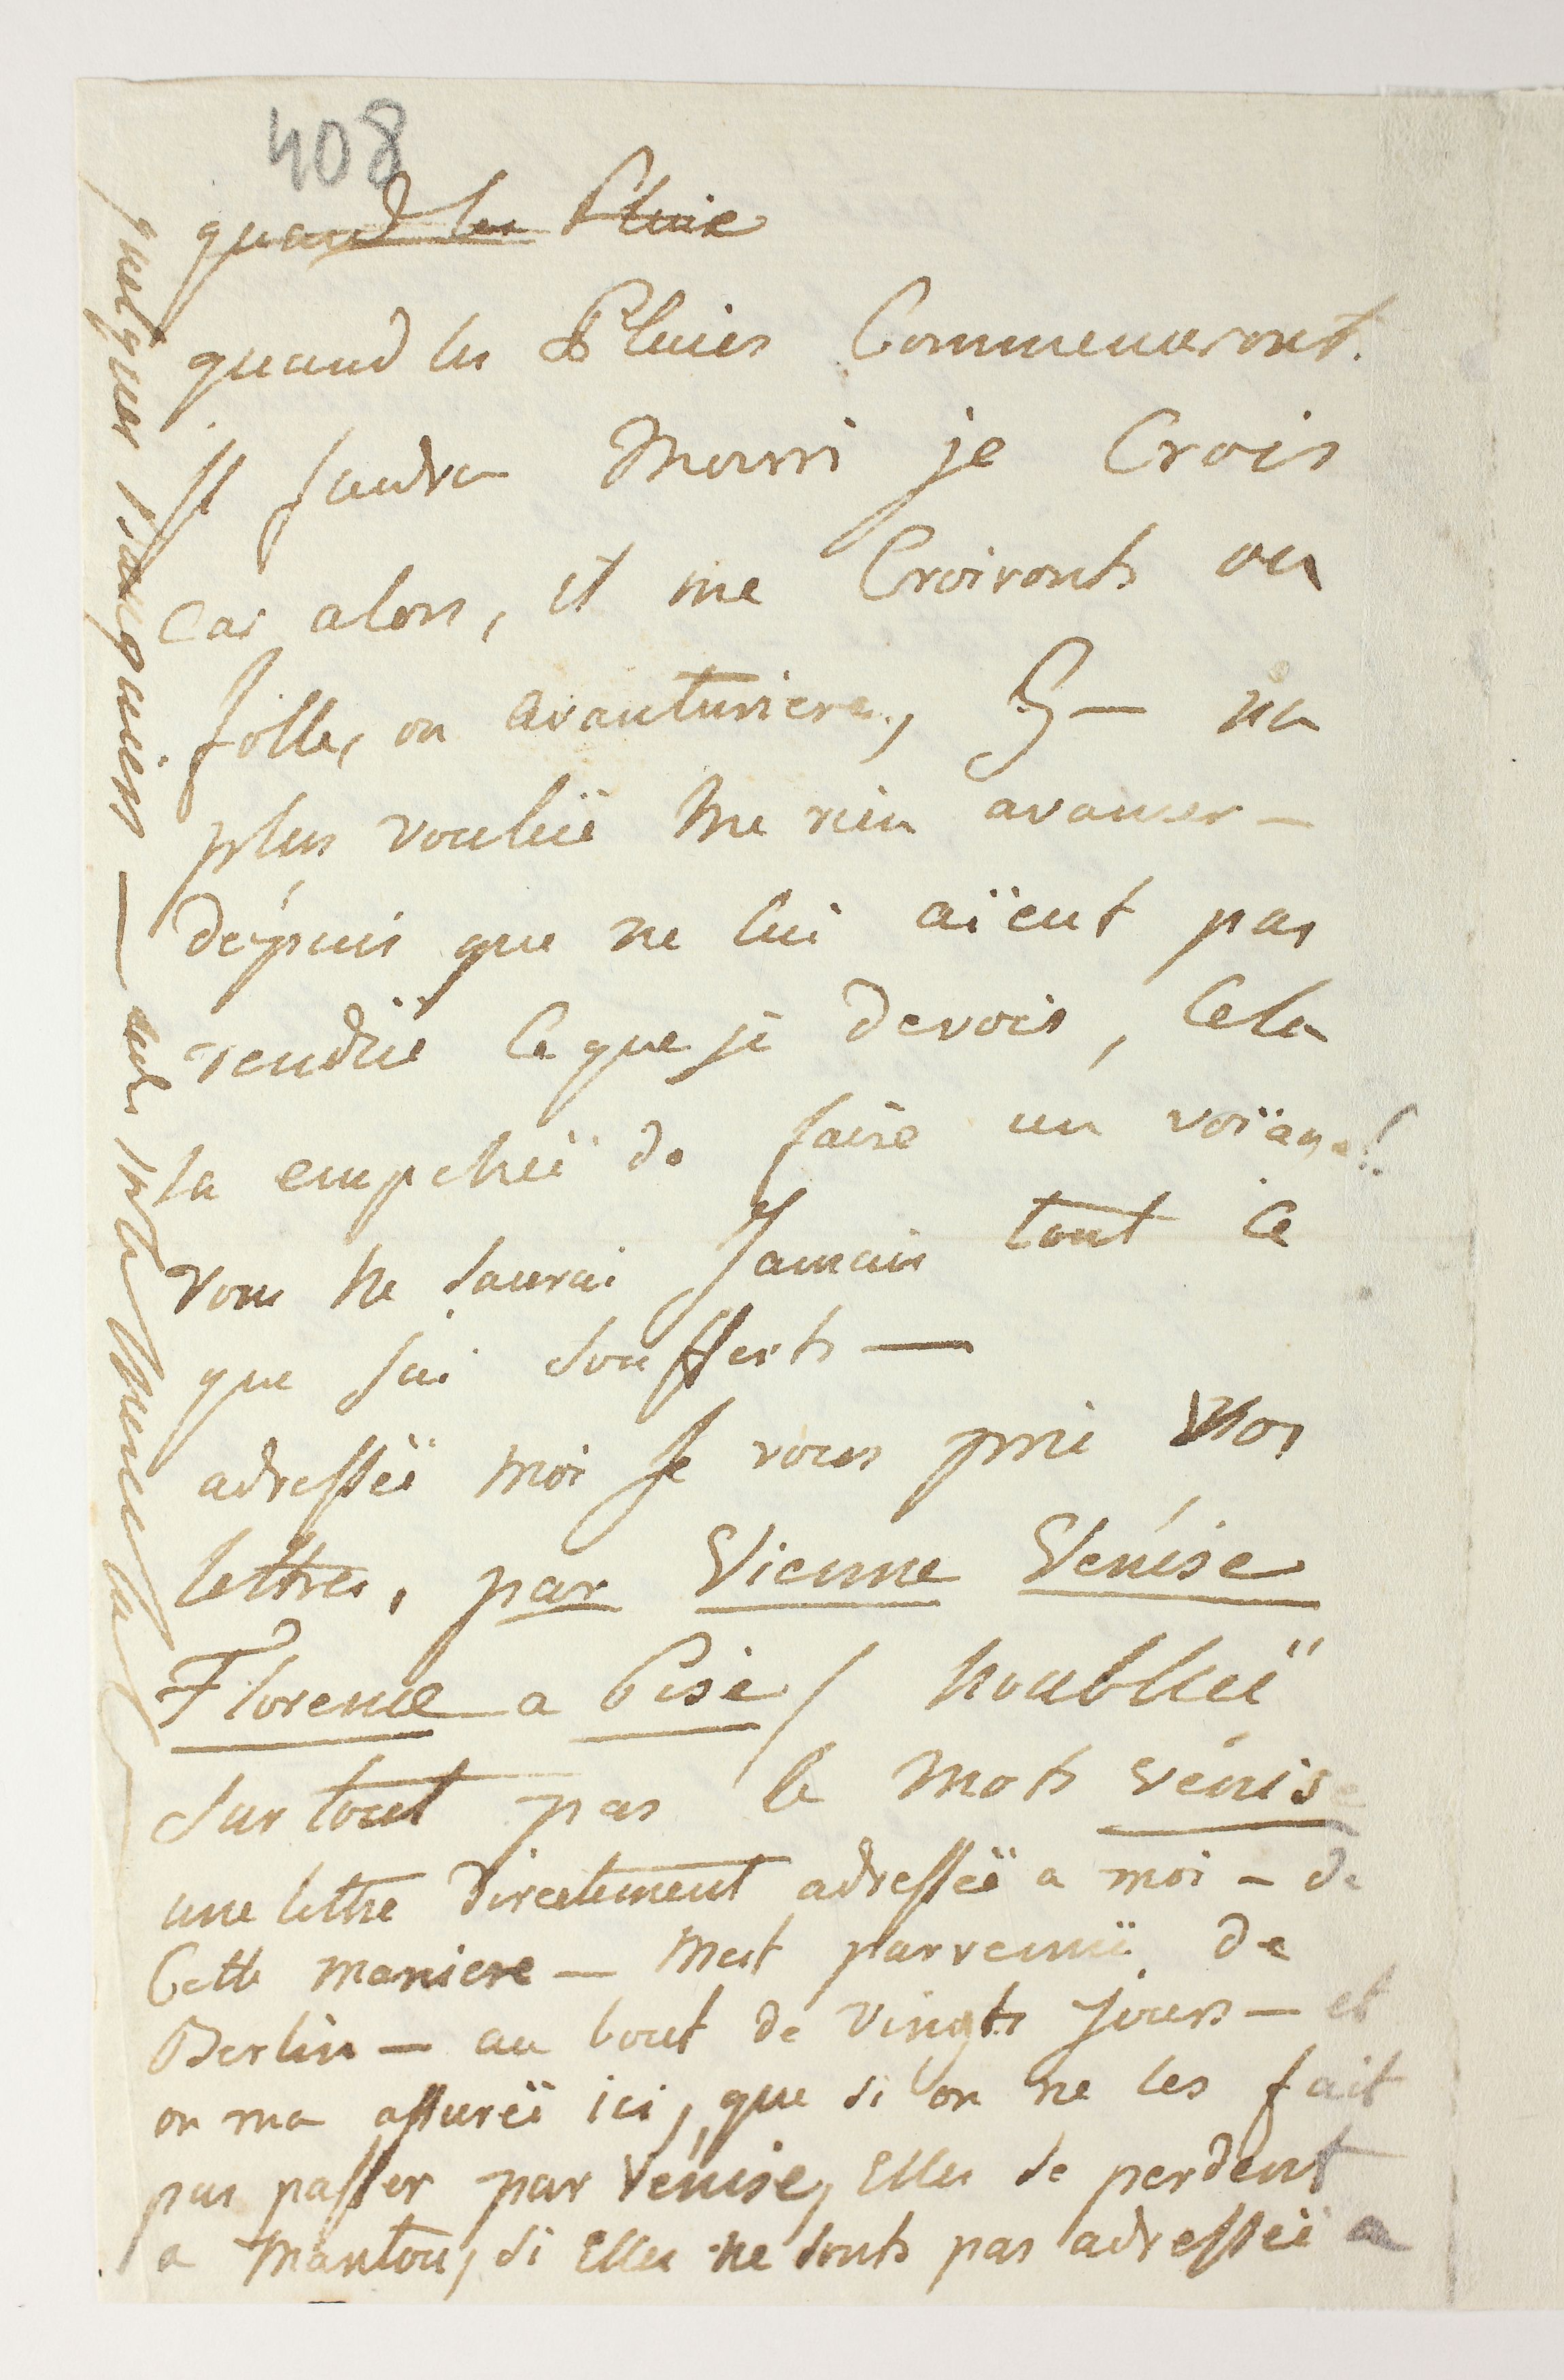 408
quand les Pluie
quand les Pluies Commenceront.
Il faudra Mourri je Crois
Car alors, il me Croironts ou
folle, ou avanturiere, G— na
plus vouluë me rien avancer —
dépuis que ne lui aïent pas
rendüe Ce que je devois, Cela
la empeheë de faire un voïage!
Vous ne saurai Jamais tout Ce
que jai soufferts —
adresseë moi Je vous prie Vos
lettres, par Vienne Vénise
Florence a Pise / noublieë
sur tout pas le mots vénise
une lettre directement adresseë a moi — de
Cette maniere — mest parvenuë de
Berlin — au bout de vingts jours — et
on ma assureë ici, que si on ne les fait
pas passer par Venise, Elles se perdent
a Mantou, si Elles ne sonts pas adresseë a
quelques